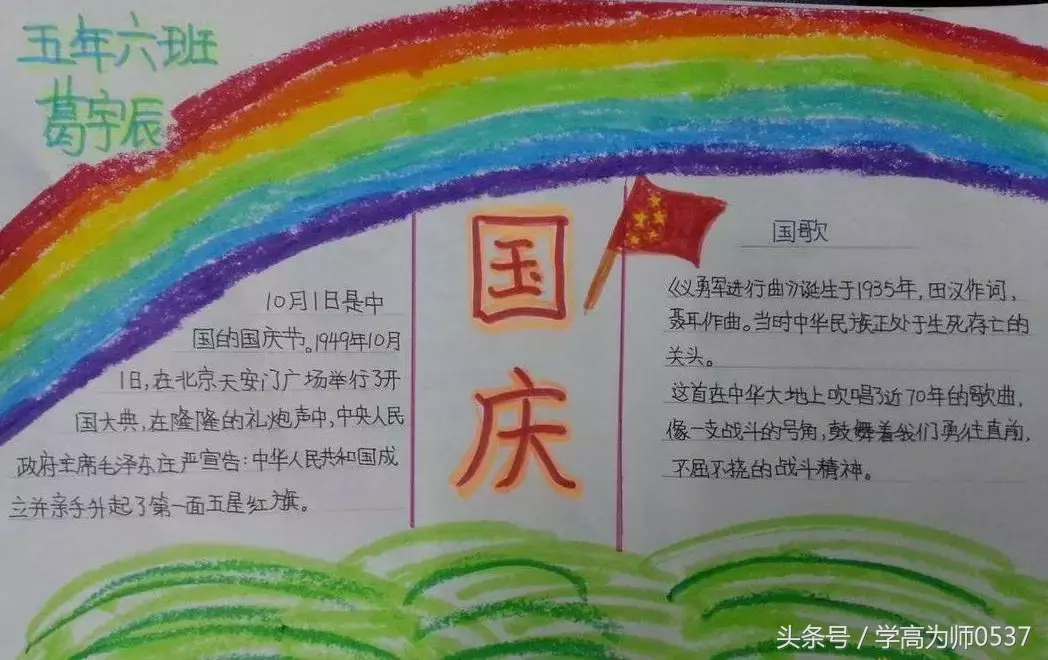 五年六班
葛宇辰
国庆
10月1日是中
国的国庆节。1949年10月
1日,在北京天安门广场举行了开
国大典,在隆隆的礼炮声中,中央人民
政府主席毛泽东庄严宣告:中华人民共和国成
立并亲手升起了第一面五星红旗。
国歌
《义勇军进行曲》诞生于1935年,田汉作词,
聂耳作曲。当时中华民族正处于生死存亡的
关头。
这首在中华大地上吹唱了近70年的歌曲,
像一支战斗的号角,鼓舞着我们勇往直前,
不屈不挠的战斗精神。
头条号 / 学高为师0537